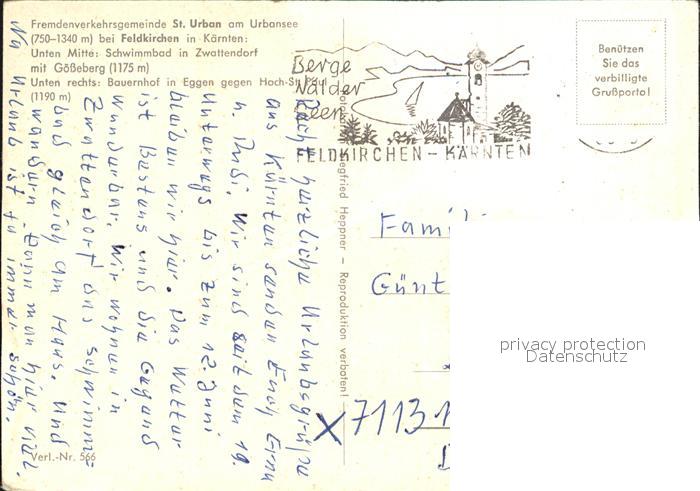 Fremdenverkehrsgemeinde St. Urban am Urbansee
(750–1340 m) bei Feldkirchen in Kärnten:
Unten Mitte: Schwimmbad in Zwattendorf
mit Gößeberg (1175 m)
Unten rechts: Bauernhof in Eggen gegen Hoch-St. Paul
(1190 m)
Berge
Wälder
Seen
FELDKIRCHEN – KÄRNTEN
Benützen
Sie das
verbilligte
Grußporto!
Recht herzliche Urlaubsgrüße
aus Kärnten senden Euch Erna
u. Rudi. Wir sind seit dem 19.
Unterwegs bis zum 12. Juni
bleiben wir hier. Das Wetter
ist Bestens und die Gegend
wunderbar. Wir wohnen in
Zwattendorf das Schwimm=
bad gleich am Haus. Und
wandern kann man hier viel.
Na Urlaub ist ja immer schön.
Siegfried Heppner – Reproduktion verboten!
Famil
Günt
X 7113
privacy protection
Datenschutz
Verl.-Nr. 566